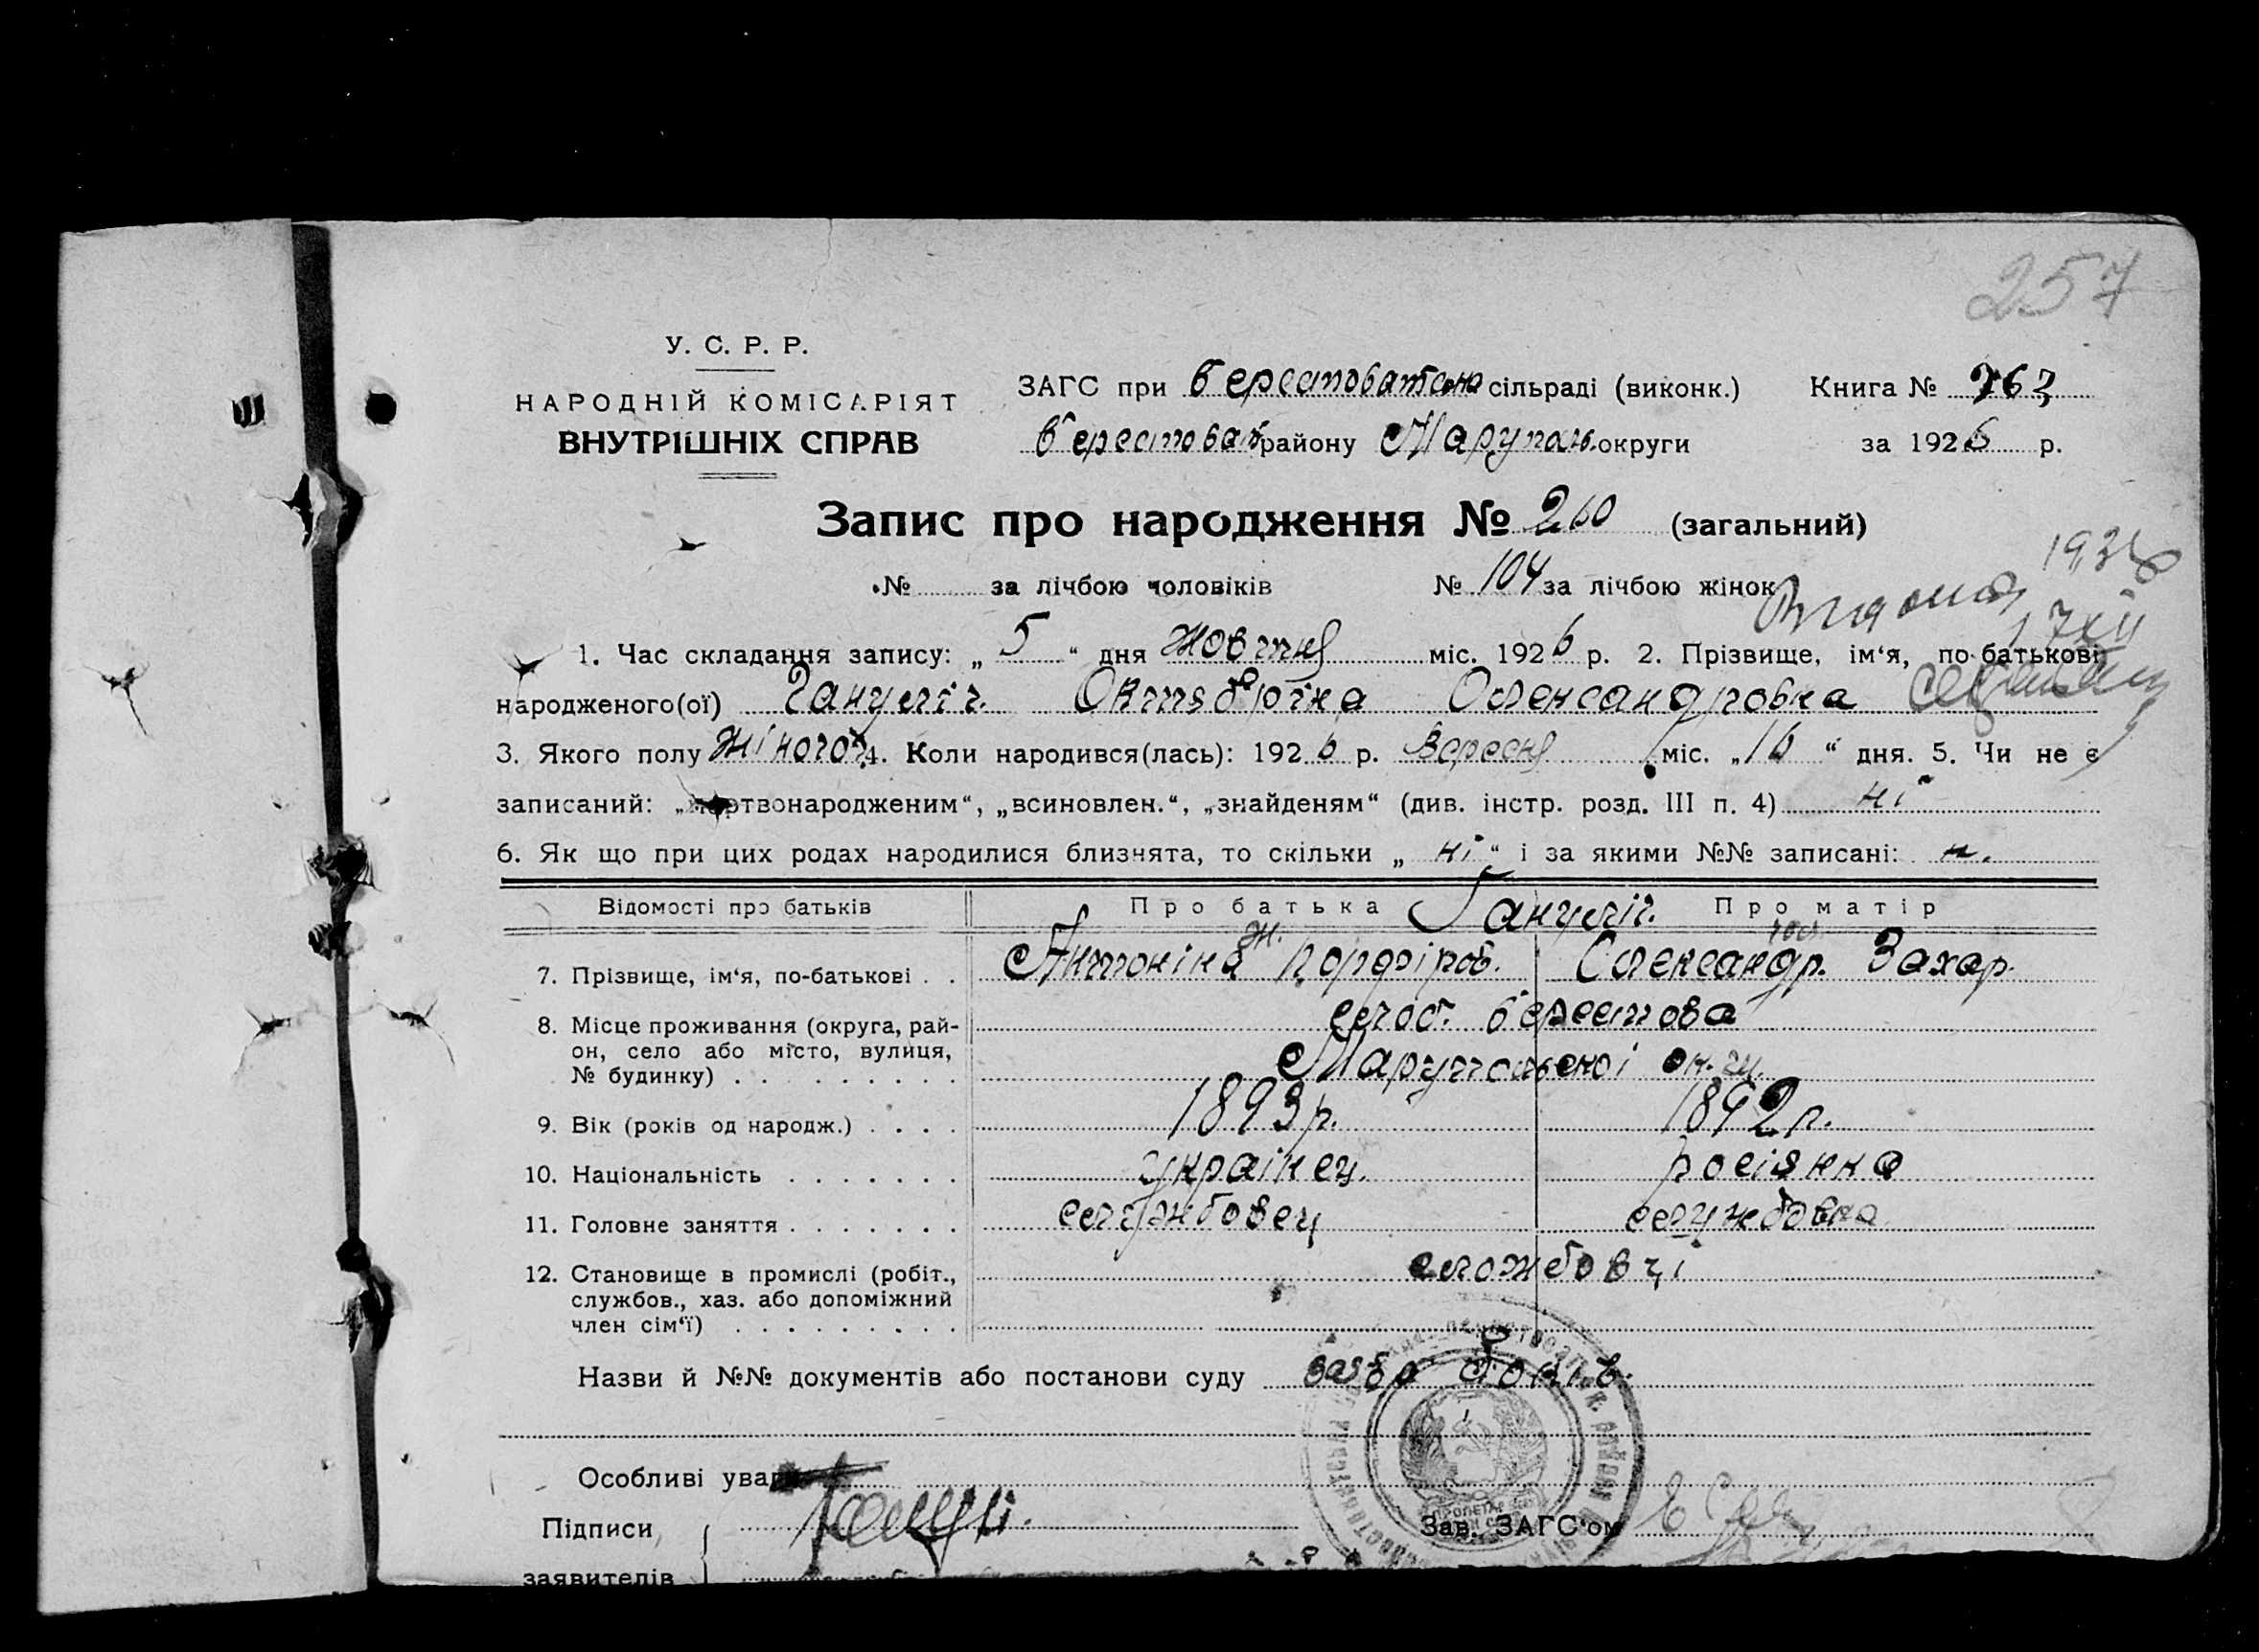 257
У. С. Р. Р.
НАРОДНІЙ КОМІСАРІЯТ
ВНУТРІШНІХ СПРАВ
ЗАГС при Берестоватском сільраді (виконк.) Книга №
Берестоват району Маруполь. округи за 1926 р.
Запис про народження № 260 (загальний)
№ за лічбою чоловіків № 104 за лічбою жінок
1. Час складання запису: „ 5 “ дня жовтня міс. 1926 р. 2. Прізвище, ім‘я, по-батькові
народженого(ої) Гануліч. Октябріна Олександровна
3. Якого полу жіночого 4. Коли народився(лась): 1926 р. Вересня міс. „16“ дня. 5. Чи не є
записаний: „мертвонародженим“, „всиновлен.“, „знайденям“ (див. інстр. розд. III п. 4) ні
6. Як що при цих родах народилися близнята, то скільки „ ні “ і за якими №№ записані: н.
Відомості про батьків Про батька Гануліч. Про матір
7. Прізвище, ім‘я, по-батькові . . Антоніна Порфіров. Олександр. Захар.
8. Місце проживання (округа, рай- слоб. Берестова
он, село або місто, вулиця, Марупольскоі ок.
№ будинку) . . . . . . . . .
9. Вік (років од народж.) . . . . 1893 р. 1892 р.
10. Національність . . . . . . . українец. росіянка
11. Головне заняття . . . . . . . службовец службовка
12. Становище в промислі (робіт., сложбовці
службов., хаз. або допоміжний
член сім‘ї) . . . . . . . . .
Назви й №№ документів або постанови суду
Особливі уваги
Підписи Зав. ЗАГС‘ом
заявителів